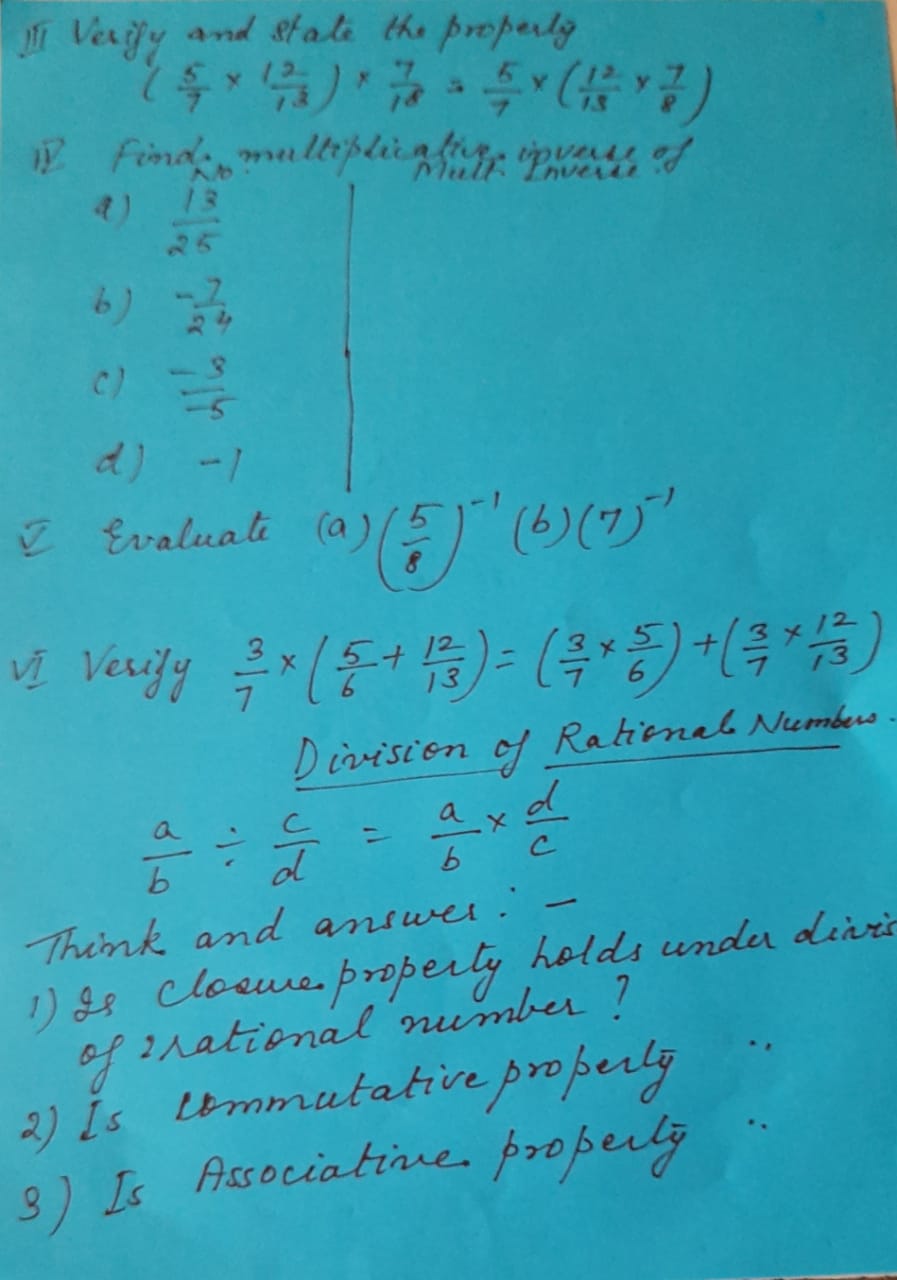 III Verify and state the property
(5/7 × 12/13) × 7/18 = 5/7 × (12/13 × 7/8)
IV Find multiplicative inverse of
No Mult. Inverse
a) 13/25
b) -7/24
c) -3/-5
d) -1
V Evaluate (a) (5/8)⁻¹ (b) (7)⁻¹
VI Verify 3/7 × (5/6 + 12/13) = (3/7 × 5/6) + (3/7 × 12/13)
Division of Rational Numbers.
a/b ÷ c/d = a/b × d/c
Think and answer : –
1) Is Closure property holds under divis
of 2 rational number ?
2) Is Commutative property "
3) Is Associative property "